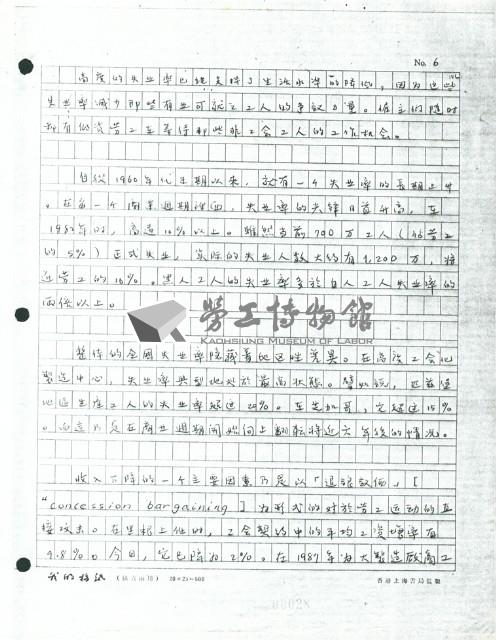 No. 6
高度的失业率已经支持了生活水準的降低,因为这些
失业率减少那些有业可就之工人的争议力量。雇主们随时
都有低资劳工在等待那些非工会工人的工作机会。
自从1960年代末期以来,就有一个失业率的长期上升
。在每一个商业週期裡面,失业率的尖锋日益升高,在
1982年时,高達10%以上。雖然当前790万工人(佔劳工
的5%)正式失业,实际的失业人数大约有1,200万,接
近劳工的10%。黑人工人的失业率多於白人工人失业率的
两倍以上。
整体的全國失业率隐藏着地区性差異。在高度工会化
製造中心,失业率典型地处於最高状態。譬如说,匹兹堡
地区生產工人的失业率超过20%。在芝加哥,它超过15%
。而這乃是在商业週期開始向上翻転将近六年後的情况。
收入下降的一个主要因素乃是以「退讓敘価」[
"concession bargaining"]为形式的对於劳工运动的直
接攻击。在里根上任时,工会契约中的平均工资增率有
9.8%。今日,它已降为2%。在1987年为大製造厰商工
勞工博物館
KAOHSIUNG MUSEUM OF LABOR
我的稿紙 (横直両用) 20×25=500
香港上海書局監製
00028